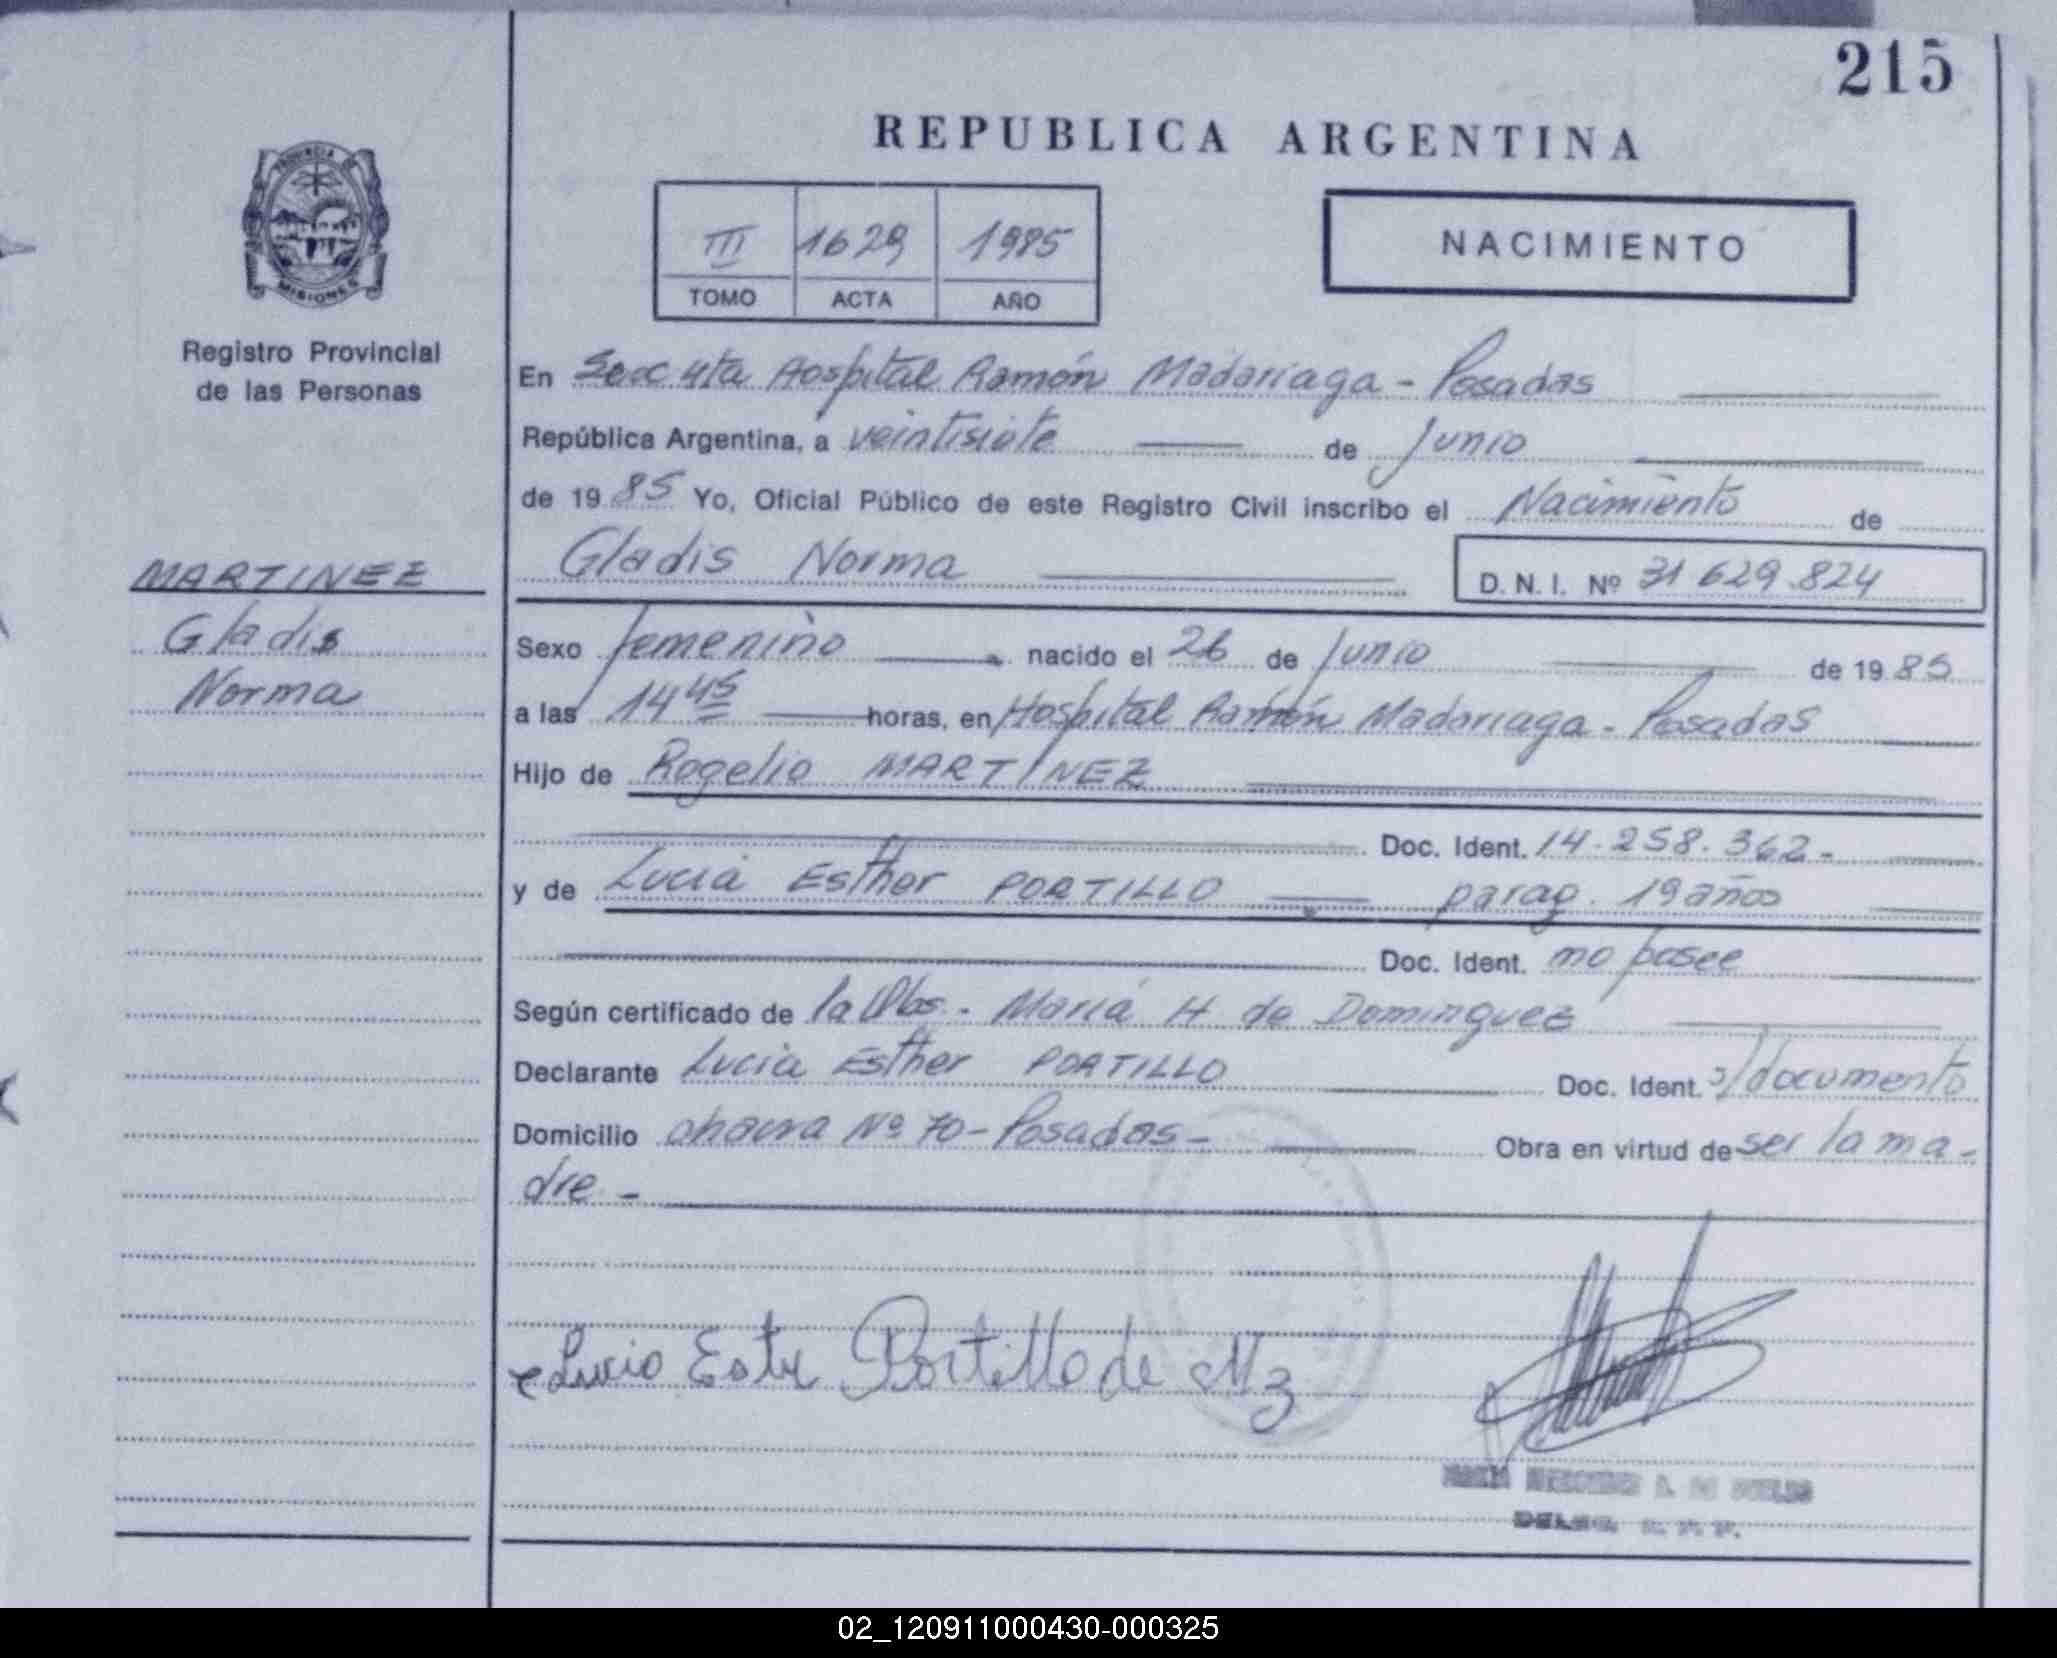 215
REPUBLICA ARGENTINA
PROVINCIA DE
MISIONES
III 1629 1985
TOMO ACTA AÑO
NACIMIENTO
Registro Provincial
de las Personas
En Secc 4ta Hospital Ramón Madariaga - Posadas
República Argentina, a veintisiete de Junio
de 1985 Yo, Oficial Público de este Registro Civil inscribo el Nacimiento de
Gladis Norma D. N. I. Nº 31 629.824
MARTINEZ
Gladis
Norma
Sexo femenino nacido el 26 de Junio de 1985
a las 14 45 horas, en Hospital Ramón Madariaga - Posadas
Hijo de Rogelio MARTINEZ
Doc. Ident. 14.258.362.-
y de Lucia Esther PORTILLO parag. 19 años
Doc. Ident. no posee
Según certificado de la Obs. - María H de Dominguez
Declarante Lucia Esther PORTILLO Doc. Ident. s/documento
Domicilio chacra Nº 70 - Posadas - Obra en virtud de ser la ma-
dre -
Lucio Este Portillo de Mz
02_120911000430-000325